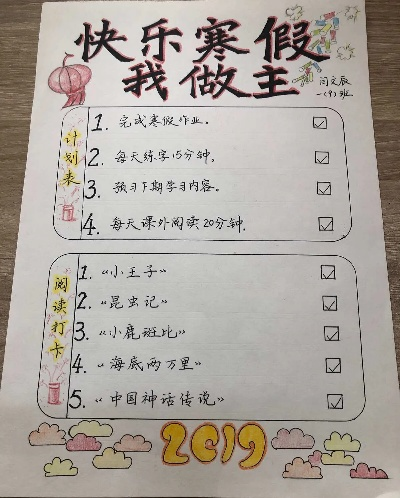 快乐寒假
我做主
闫文辰
一(9)班
计划表
1. 完成寒假作业。
2. 每天练字15分钟。
3. 预习下期学习内容。
4. 每天课外阅读20分钟.
阅读打卡
1. “小王子”
2. “昆虫记”
3. “小鹿班比”
4. “海底两万里”
5. “中国神话传说”
2019